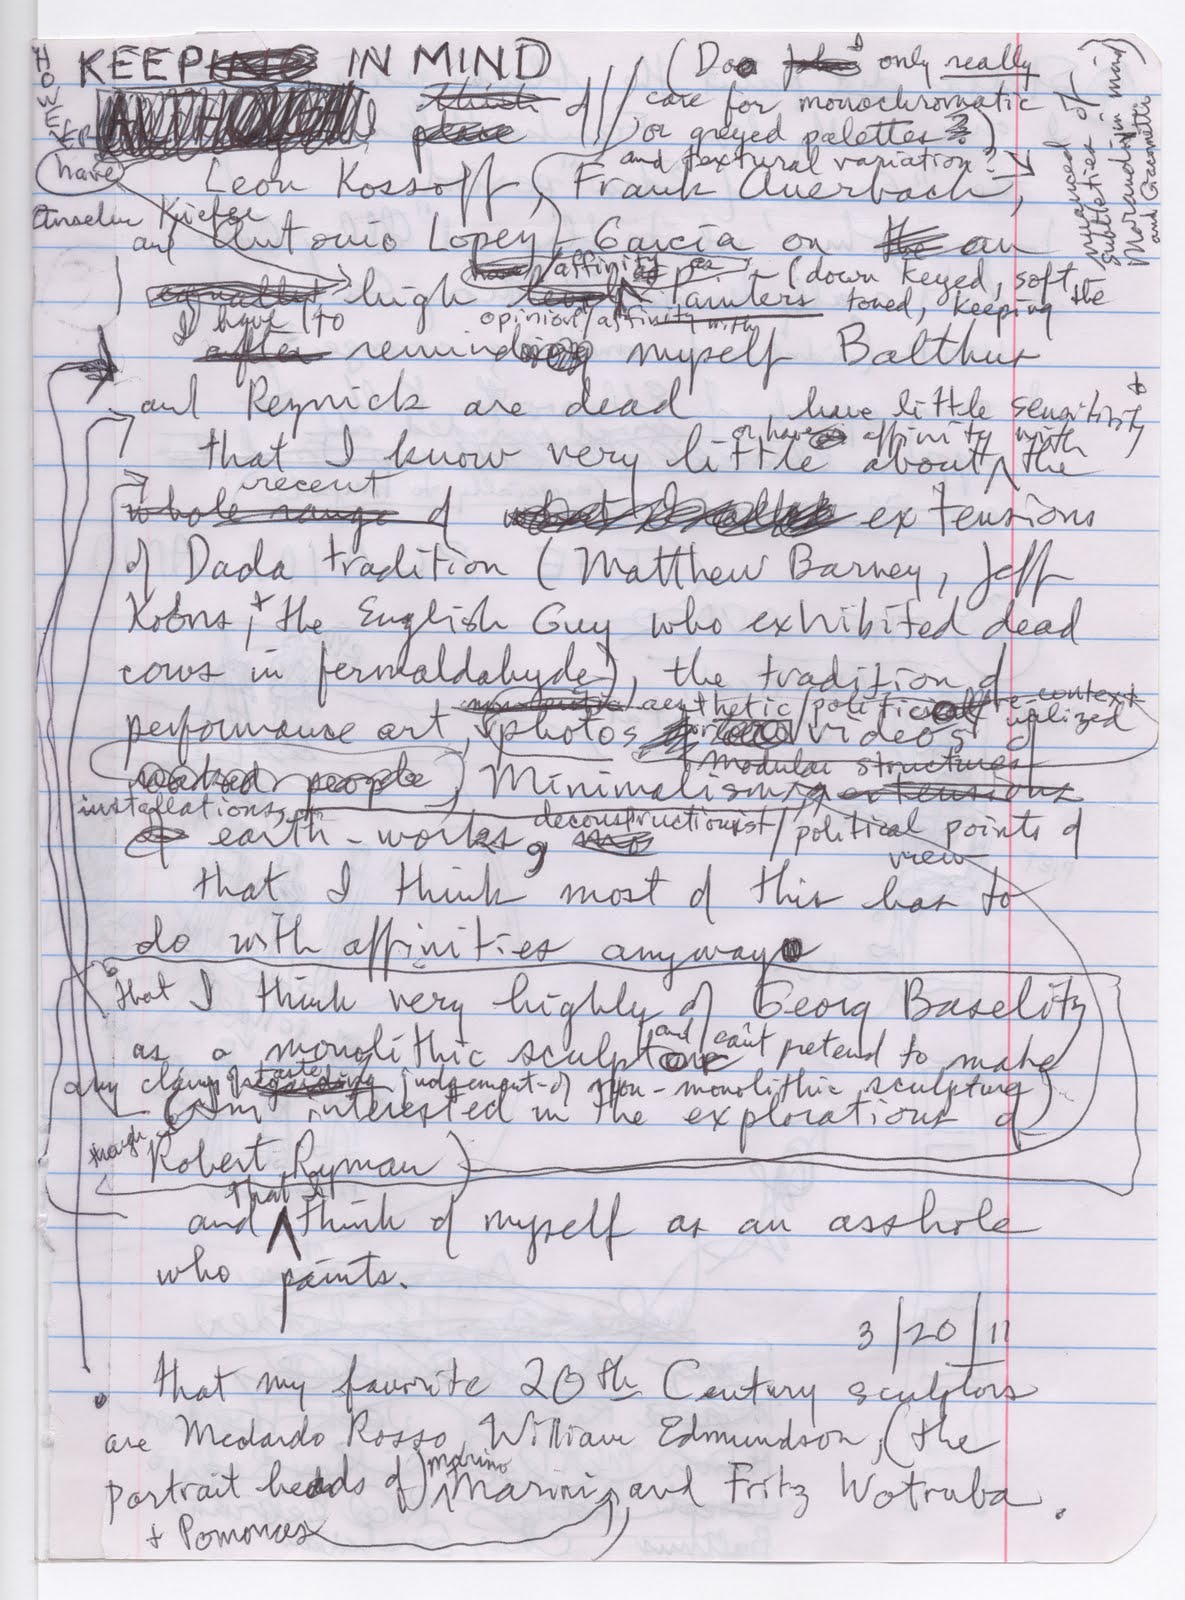 HOWEVER
KEEP IN MIND
(Do I only really
care for monochromatic
or greyed palettes
and textural variation?
nuanced
subtleties of
Morandi in mind)
and Giacometti
ALTHOUGH think of
please
have
Leon Kossoff, Frank Auerbach,
Anselm Kiefer
and Antonio Lopez-Garcia on the an
affinity as
equally high level painters (down keyed, soft
toned, keeping the
I have to opinion/affinity with
after reminding myself Balthus
and Reznick are dead , have little sensitivity +
or have affinity with
that I know very little about the
recent
whole range of extensions
of Dada tradition (Matthew Barney, Jeff
Koons, + the English Guy who exhibited dead
cows in fermaldahyde), the tradition of
aesthetic/political context
ualized
performance art, photos videos of
modular structures
naked people, Minimalism, extensions
installations,
of earth-works, deconstructionist/political points of
view
that I think most of this has to
do with affinities anyway
that I think very highly of Georg Baselitz
as a monolithic sculptor and can't pretend to make
any claims of taste regarding judgement of non-monolithic sculpture)
(am interested in the explorations of
though
Robert Ryman)
that I
and think of myself as an asshole
who paints.
3/20/11
that my favorite 20th Century sculptors
are Medardo Rosso, William Edmundson, (the
portrait heads of) Marino Marini, and Fritz Wotruba.
+ Pomonas